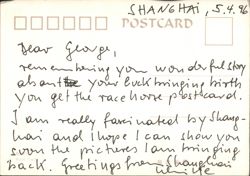 SHANGHAI, 5.4.96
POSTCARD
Dear George,
remembering you wonderful story
about your luck bringing birth
you get the race horse postcard.
I am really fascinated by Shang-
hai and I hope I can show you
soon the pictures I am bringing
back. Greetings from Shanghai